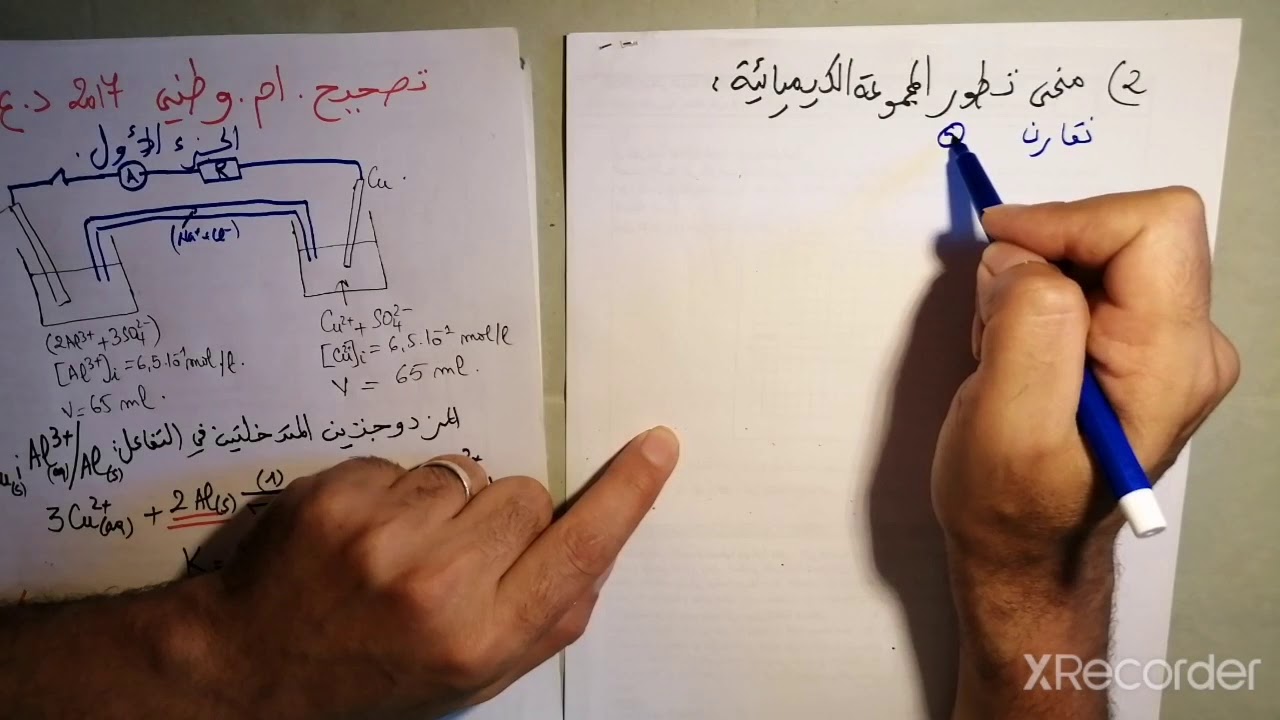 تصحيح . ام . وطني 2017 د.ع
الجزء الأول .
A
R
Cu .
(Na⁺ + Cl⁻)
(2Al³⁺ + 3SO₄²⁻)
[Al³⁺]ᵢ = 6,5.10⁻¹ mol/l.
V = 65 ml .
Cu²⁺ + SO₄²⁻
[Cu²⁺]ᵢ = 6,5.10⁻¹ mol/l
V = 65 ml .
المزدوجتين المتدخلتين في التفاعل:
Al³⁺(aq)/Al(s)
3Cu²⁺(aq) + 2Al(s) (1)
K =
2) منحى تطور المجموعة الكيميائية :
نقارن
XRecorder